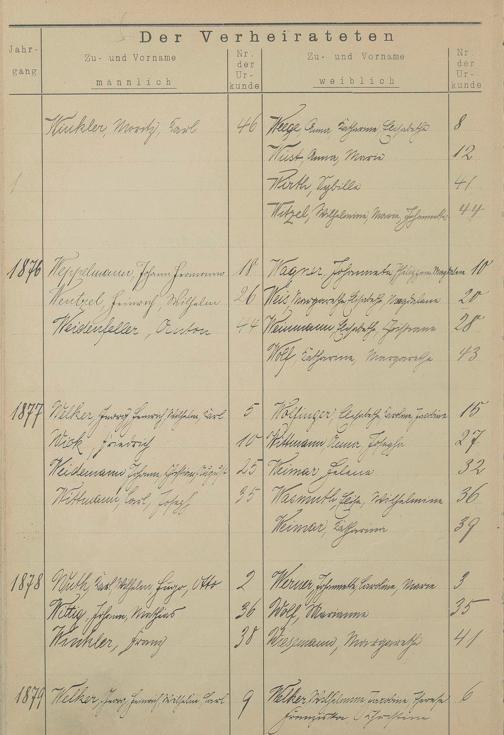 Der Verheirateten
Jahr-
gang
Zu- und Vorname
männlich
Nr.
der
Ur-
kunde
Zu- und Vorname
weiblich
Nr.
der
Ur-
kunde
Winkler, Moritz, Carl 46 Weege, Anna Catharina Elisabetha 8
Wüst, Anna, Maria 12
Wirth, Sybilla 41
Witzel, Wilhelmine, Maria, Johannette 44
1876 Johann Hermann 18 Wagner, Johannetta Philippine Magdalena 10
Wentzel, Heinrich, Wilhelm 26 Weis Margaretha Elisabeth, Magdalena 20
Weidenfeller, Anton 44 Weinmann Elisabeth, 28
Wolf, Catharina, Margaretha 43
1877 Welker, Heinrich Wilhelm, Carl 5 Wolfinger, Elisabeth Caroline Jacobine 15
Friedrich 10 Wittmann Anna, 27
Weidemann Johann, Christian, August 25 Weimar, Helena 32
Wittmann, Carl, Joseph 35 Warmuth, Wilhelmine 36
Weimar, Catharina 39
1878 Carl, Wilhelm Hugo, Otto 2 Werner, Johannetta, Caroline, Maria 3
Wittig, Johann, Mathias 36 Wolf, Marianne 35
Winkler, Franz 38 Margaretha 41
1879 Welker, Heinrich Wilhelm, Carl 9 Welker Wilhelmine, Jacobine, Therese 6
Franziska Christine